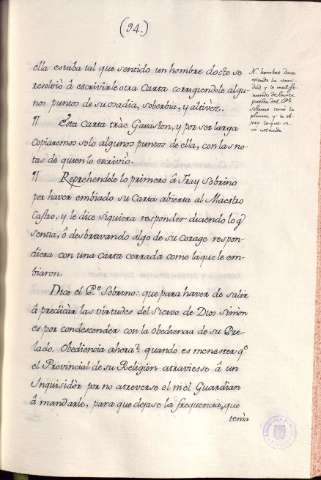 (94.)
ella estaba tal que sentido un hombre docto se
resolvió à escrivirle otra Carta corrigiendole algu-
nos puntos de su osadia, soberbia, y altivez.
¶ Esta Carta trae Gavaston, y por ser larga
copiaremos solo algunos puntos de ella, con las no-
tas de quien la escrivio.
¶ Reprehendele lo primero à Fray Sobrino
por haver embiado su Carta abierta al Maestro
Castro, y le dice siquiera responder diciendo lo q.
sentia, ò desbravando algo de su corage respon-
diera con una carta cerrada como la que le em-
biaron.
Dice el P.e Sobrino: que para haver de salir
à predicar las virtudes del Siervo de Dios Simon
es por condescender con la obediencia de su Per-
lado. Obediencia ahora? quando es menester q.e
el Provincial de su Religion atraviesse à un
Inquisidor por no atreverse el mel Guardian
à mandarle, para que dejase la frequencia, que
tenia
Un hombre docto